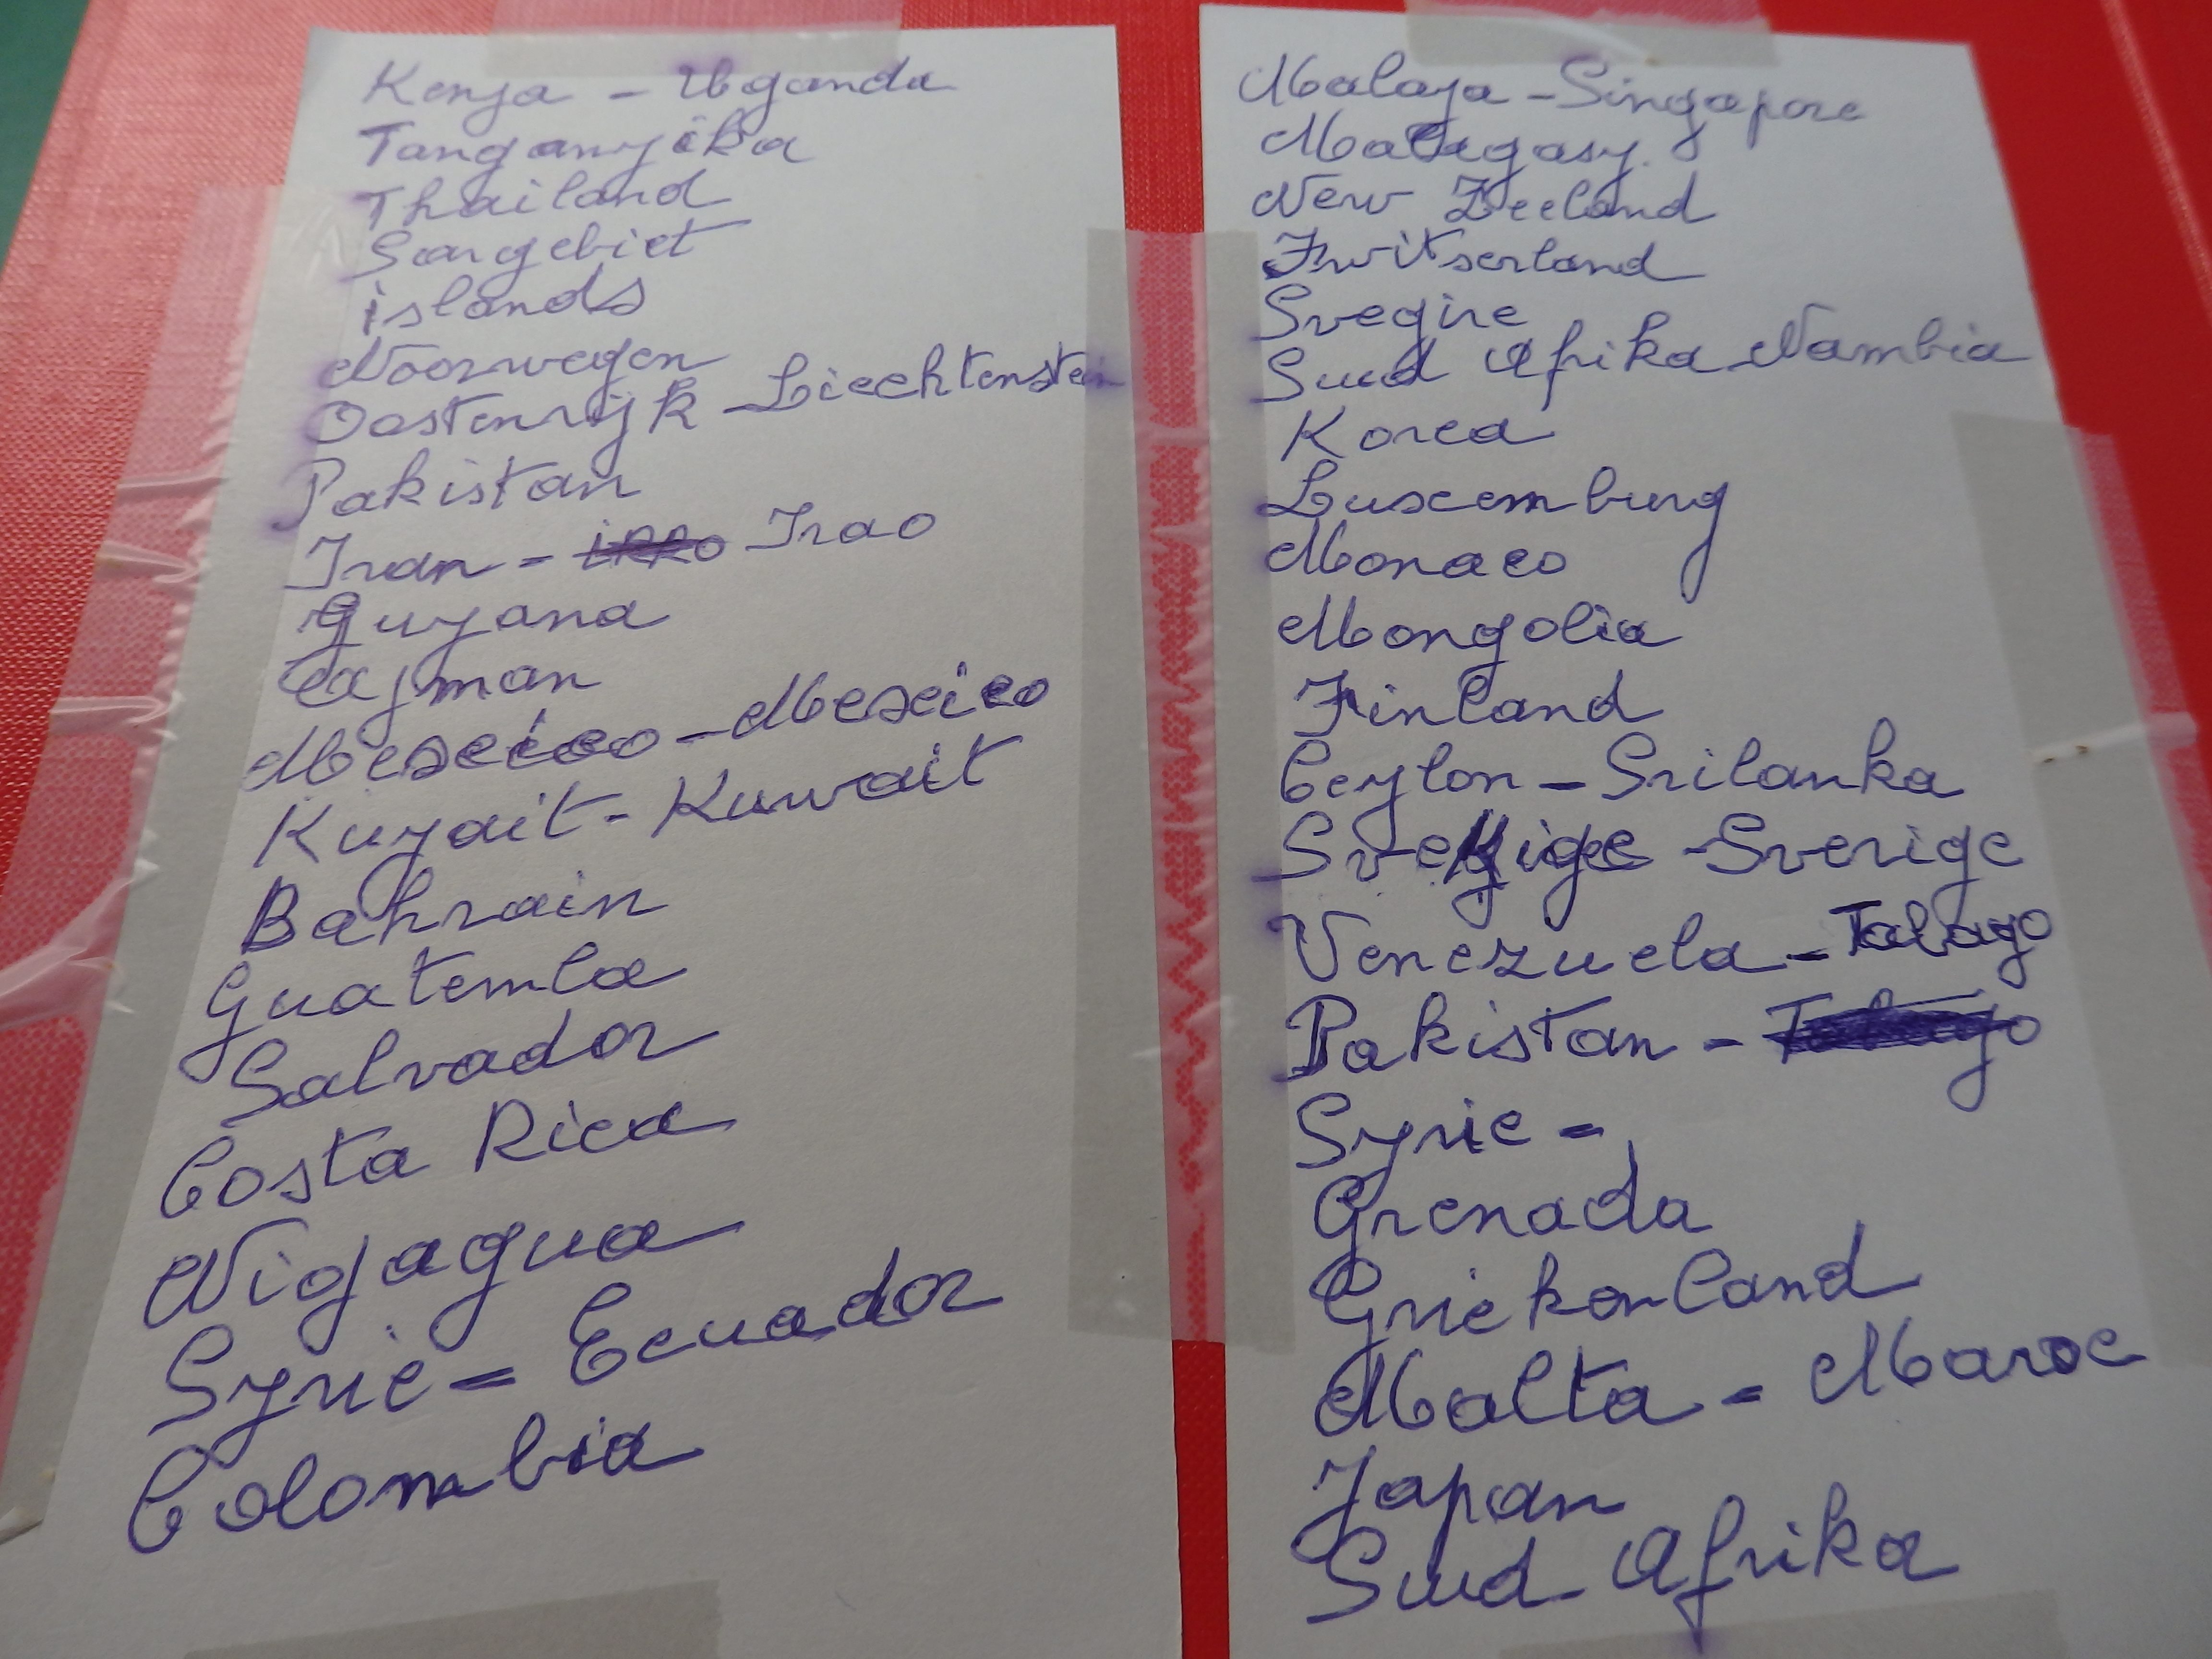 Kenya - Uganda
Tanganyika
Thailand
Saargebiet
islands
Noorwegen
Oostenrijk - Liechtenstein
Pakistan
Iran - Irao
Guyana
Ajman
Mexico - Mexico
Kuyait - Kuwait
Bahrain
Guatemla
Salvador
Costa Rica
Syrie = Ecuador
Colombia
Malaya - Singapore
Malagasy
New Zeeland
Zwitserland
Svegire
Suid Afrika Nambia
Korea
Luxemburg
Monaco
Mongolia
Finland
Ceylon - Srilanka
- Sverige
Venezuela - Tabago
Pakistan -
Syrie =
Grenada
Griekenland
Malta = Maroc
Japan
Suid Afrika